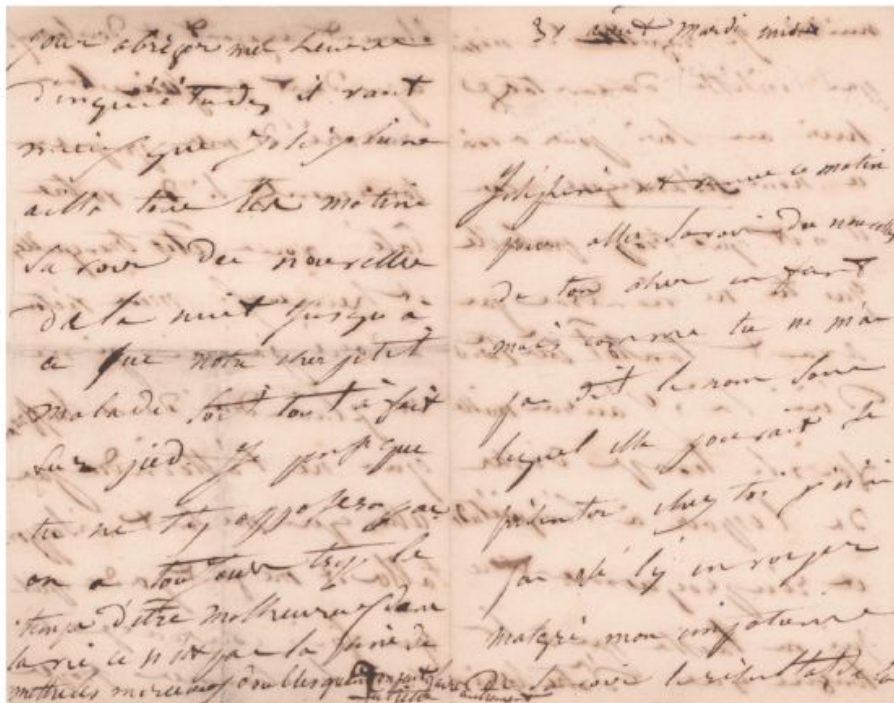 pour abréger mes heures
d'inquiétudes, il vaut
mieux que Joséphine
aille tous les matins
savoir des nouvelles
de la nuit jusqu'à
ce que notre cher petit
malade soit tout à fait
sur pied. Je pense que
tu ne t'y opposeras pas
on a toujours trop le
temps d'être malheureux dans
la vie ce n'est pas la peine de
mettre les morceaux doubles quand on peut faire
autrement
31 août mardi midi
Joséphine est venue ce matin
pour aller savoir des nouvelles
de ton cher enfant
mais comme tu ne m'as
pas dit le nom sous
lequel elle pourrait se
présenter chez toi je n'ai
pas osé l'y envoyer
malgré mon impatience
de savoir le résultat de la